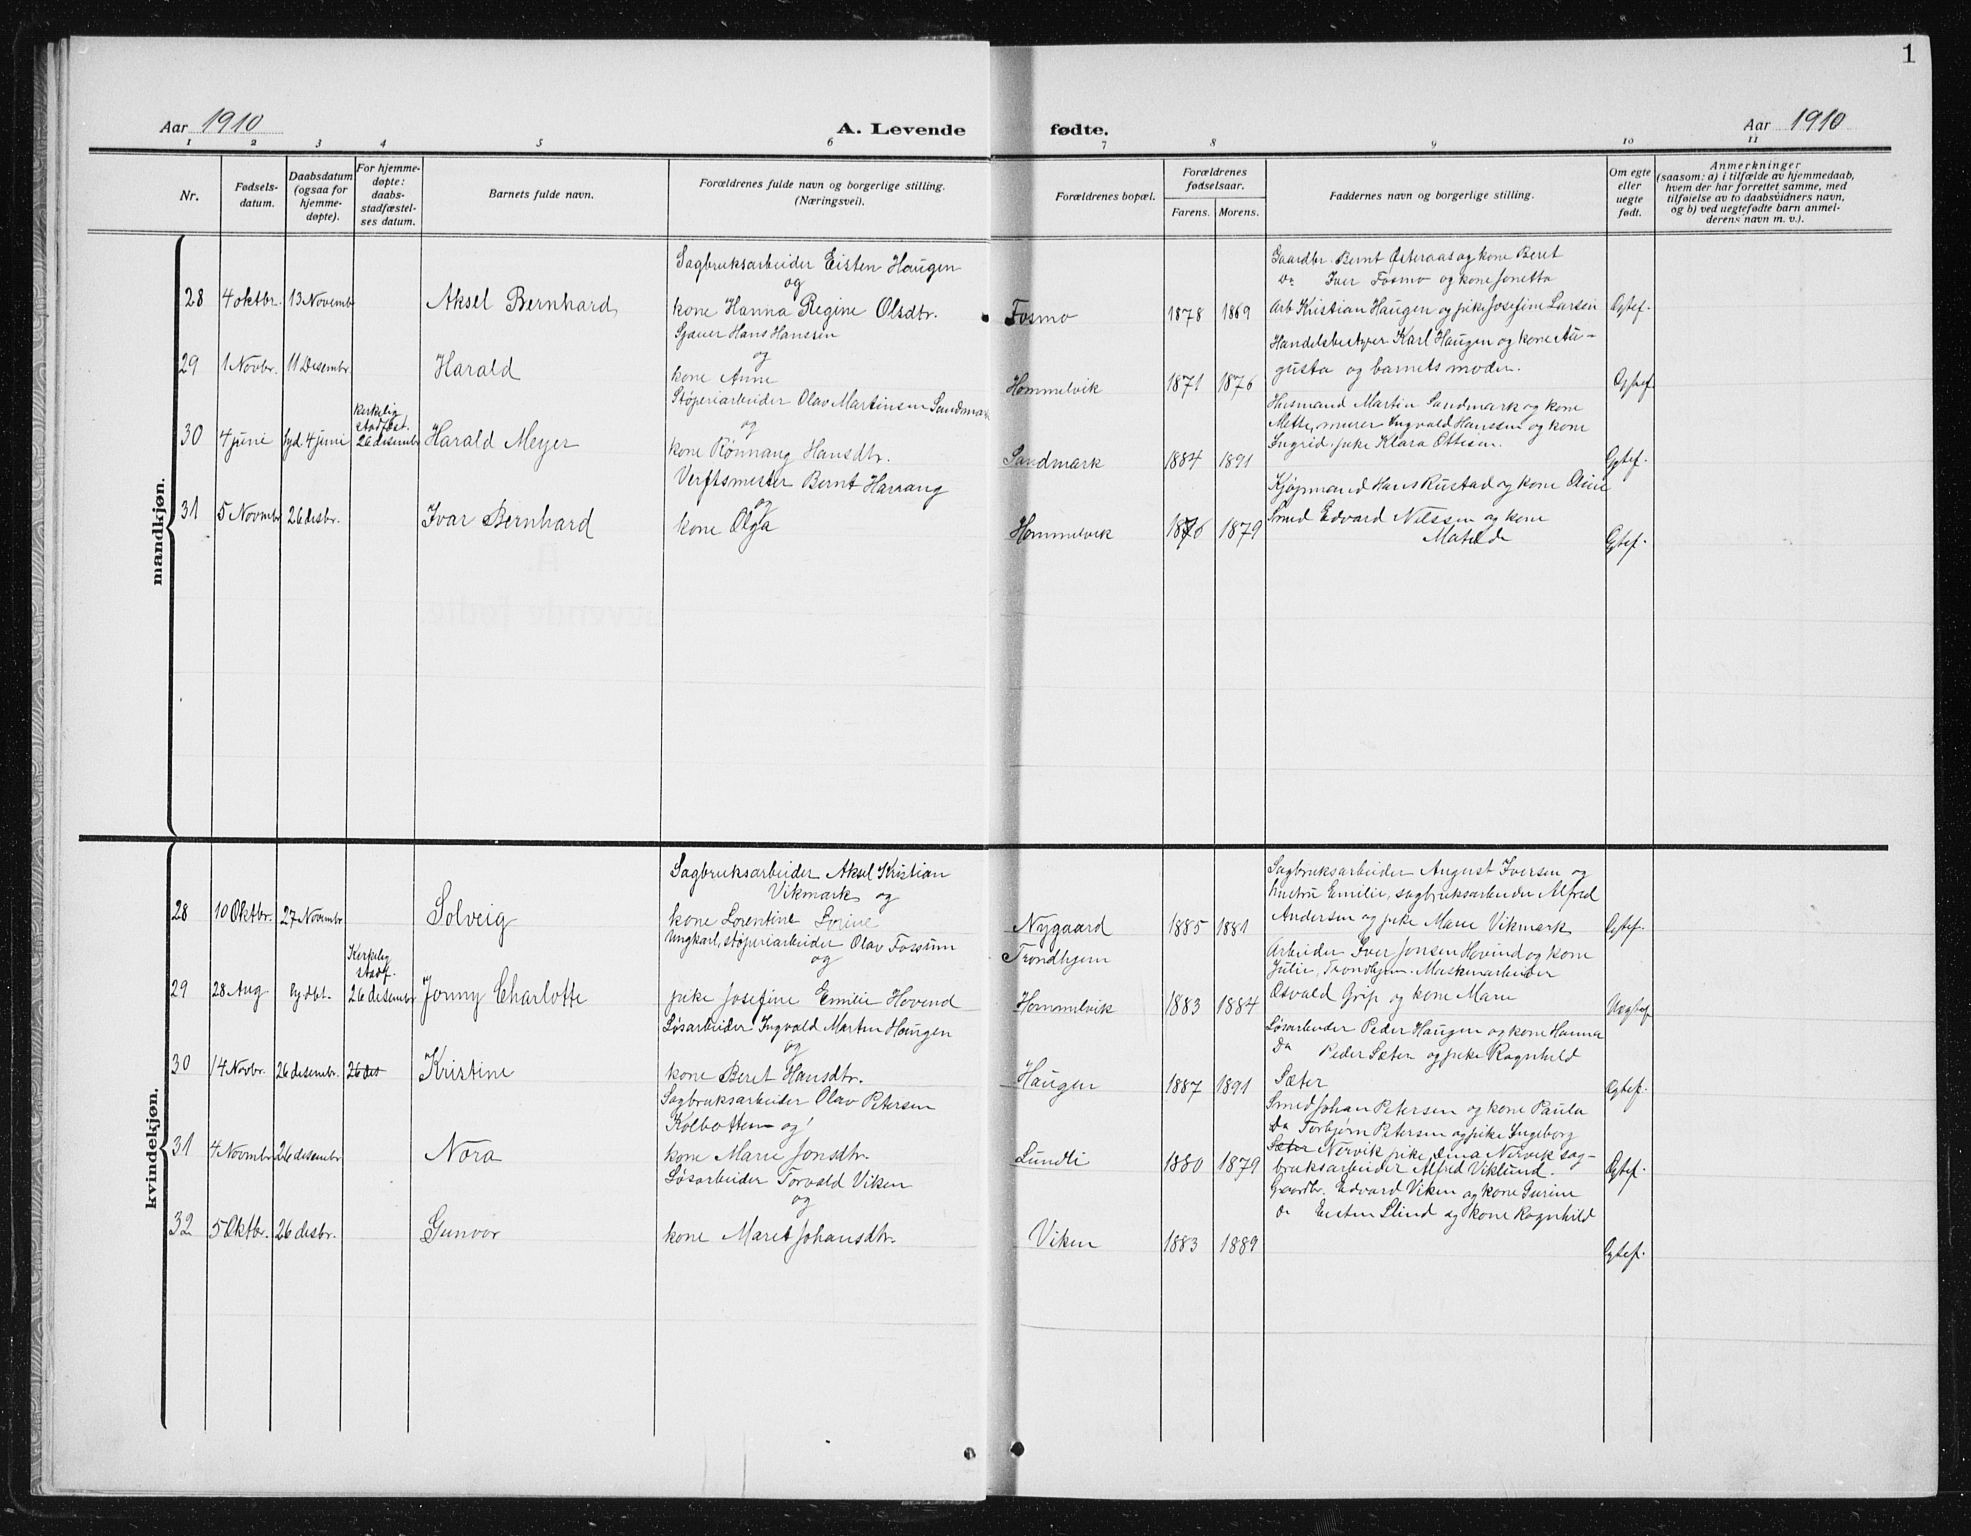 1
Aar 1910
A. Levende
fødte.
Aar 1910
1 2 3 4 5 6 7 8 9 10 11
Nr.
Fødsels-
datum.
Daabsdatum
(ogsaa for
hjemme-
døpte).
For hjemme-
døpte:
daabs-
stadfæstel-
ses datum.
Barnets fulde navn.
Forældrenes fulde navn og borgerlige stilling.
(Næringsvei).
Forældrenes bopæl.
Forældrenes
fødselsaar.
Farens. Morens.
Faddernes navn og borgerlige stilling.
Om egte
eller
uegte
født.
Anmerkninger
(saasom: a) i tilfælde av hjemmedaab,
hvem der har forrettet samme, med
tilføielse av to daabsvidners navn,
og b) ved uegtefødte barn anmel-
derens navn m. v.).
mandkjøn.
28 4 oktbr. 13 Novembr
Aksel Bernhard
Sagbruksarbeider Eisten Haugen
og
kone Hanna Regine Olsdtr.
Fosmo 1878 1869
Gaardbr. Bernt Østeraas og kone Beret
Do Iver Fosmo og kone Jonetta
Arb Kristian Haugen og pike Josefine Larsen
Egtef.
29 1 Novbr. 11 Desembr.
Harald
Hans Hanssen
og
kone Anne
Hommelvik 1871 1876
Handelsbestyrer Karl Haugen og kone Au-
gusta og barnets moder.
Egtef.
30 4 juni 4 juni
kirkelig
stadfest.
26 desembr
Harald Meyer
Støperiarbeider Olav Martinsen Sandmark
og
kone Rønnaug Hansdtr.
Sandmark 1884 1891
Husmand Martin Sandmark og kone
Mette, murer Ingvald Hanssen og kone
Ingrid, pike Klara Ottesen.
Egtef.
31 5 Novmbr 26 desbr.
Ivar Bernhard
Verftsmester Bernt Harrang
og
kone Olga
Hommelvik 1876 1879
Kjøpmand Hans Rustad og kone Oline
Smed Edvard Nilssen og kone
Matilde
Egtef.
kvindekjøn.
28 10 Oktbr. 27 Novembr
Solveig
Sagbruksarbeider Aksel Kristian
Vikmark og
kone Lorentine
Nygaard 1885 1881
Sagbruksarbeider August Iversen og
hustru Emilie, sagbruksarbeider Alfred
Andersen og pike Marie Vikmark
Egtef.
29 28 Aug
Kirkelig
stadf.
26 desembr
Jonny Charlotte
Ungkarl, støperiarbeider Olav Fossum
og
pike Josefine Emilie Hovend
Trondhjem
Hommelvik 1883 1884
Arbeider Iver Jonsen Hovind og kone
Julie, Trondhjem. Maskinarbeider
Osvald Grip og kone Marie
Uegtef.
30 14 Novbr. 26 desembr. 26 des
Kristine
Løsarbeider Ingvald Martin Haugen
og
kone Beret Hansdtr.
Haugen 1887 1891
Løsarbeider Peder Haugen og kone Hanna
Do Peder Sæter og pike Ragnhild
Sæter
Egtef.
31 4 Novmbr 26 desembr
Nora
Sagbruksarbeider Olav Petersen
Kolbotten og
kone Marie Jonsdtr.
Lundli 1880 1879
Smed Johan Petersen og kone Paula
Do Torbjørn Petersen og pike Ingeborg
Sæter Nervik, pike Nervik sag-
bruksarbeider Alfred Viklund.
Egtef.
32 5 Oktbr. 26 desbr.
Gunvor
Løsarbeider Torvald Viken
og
kone Maret Johansdtr.
Viken 1883 1889
Gaardbr. Edvard Viken og kone Gurine
Do Eisten Slind og kone Ragnhild
Egtef.